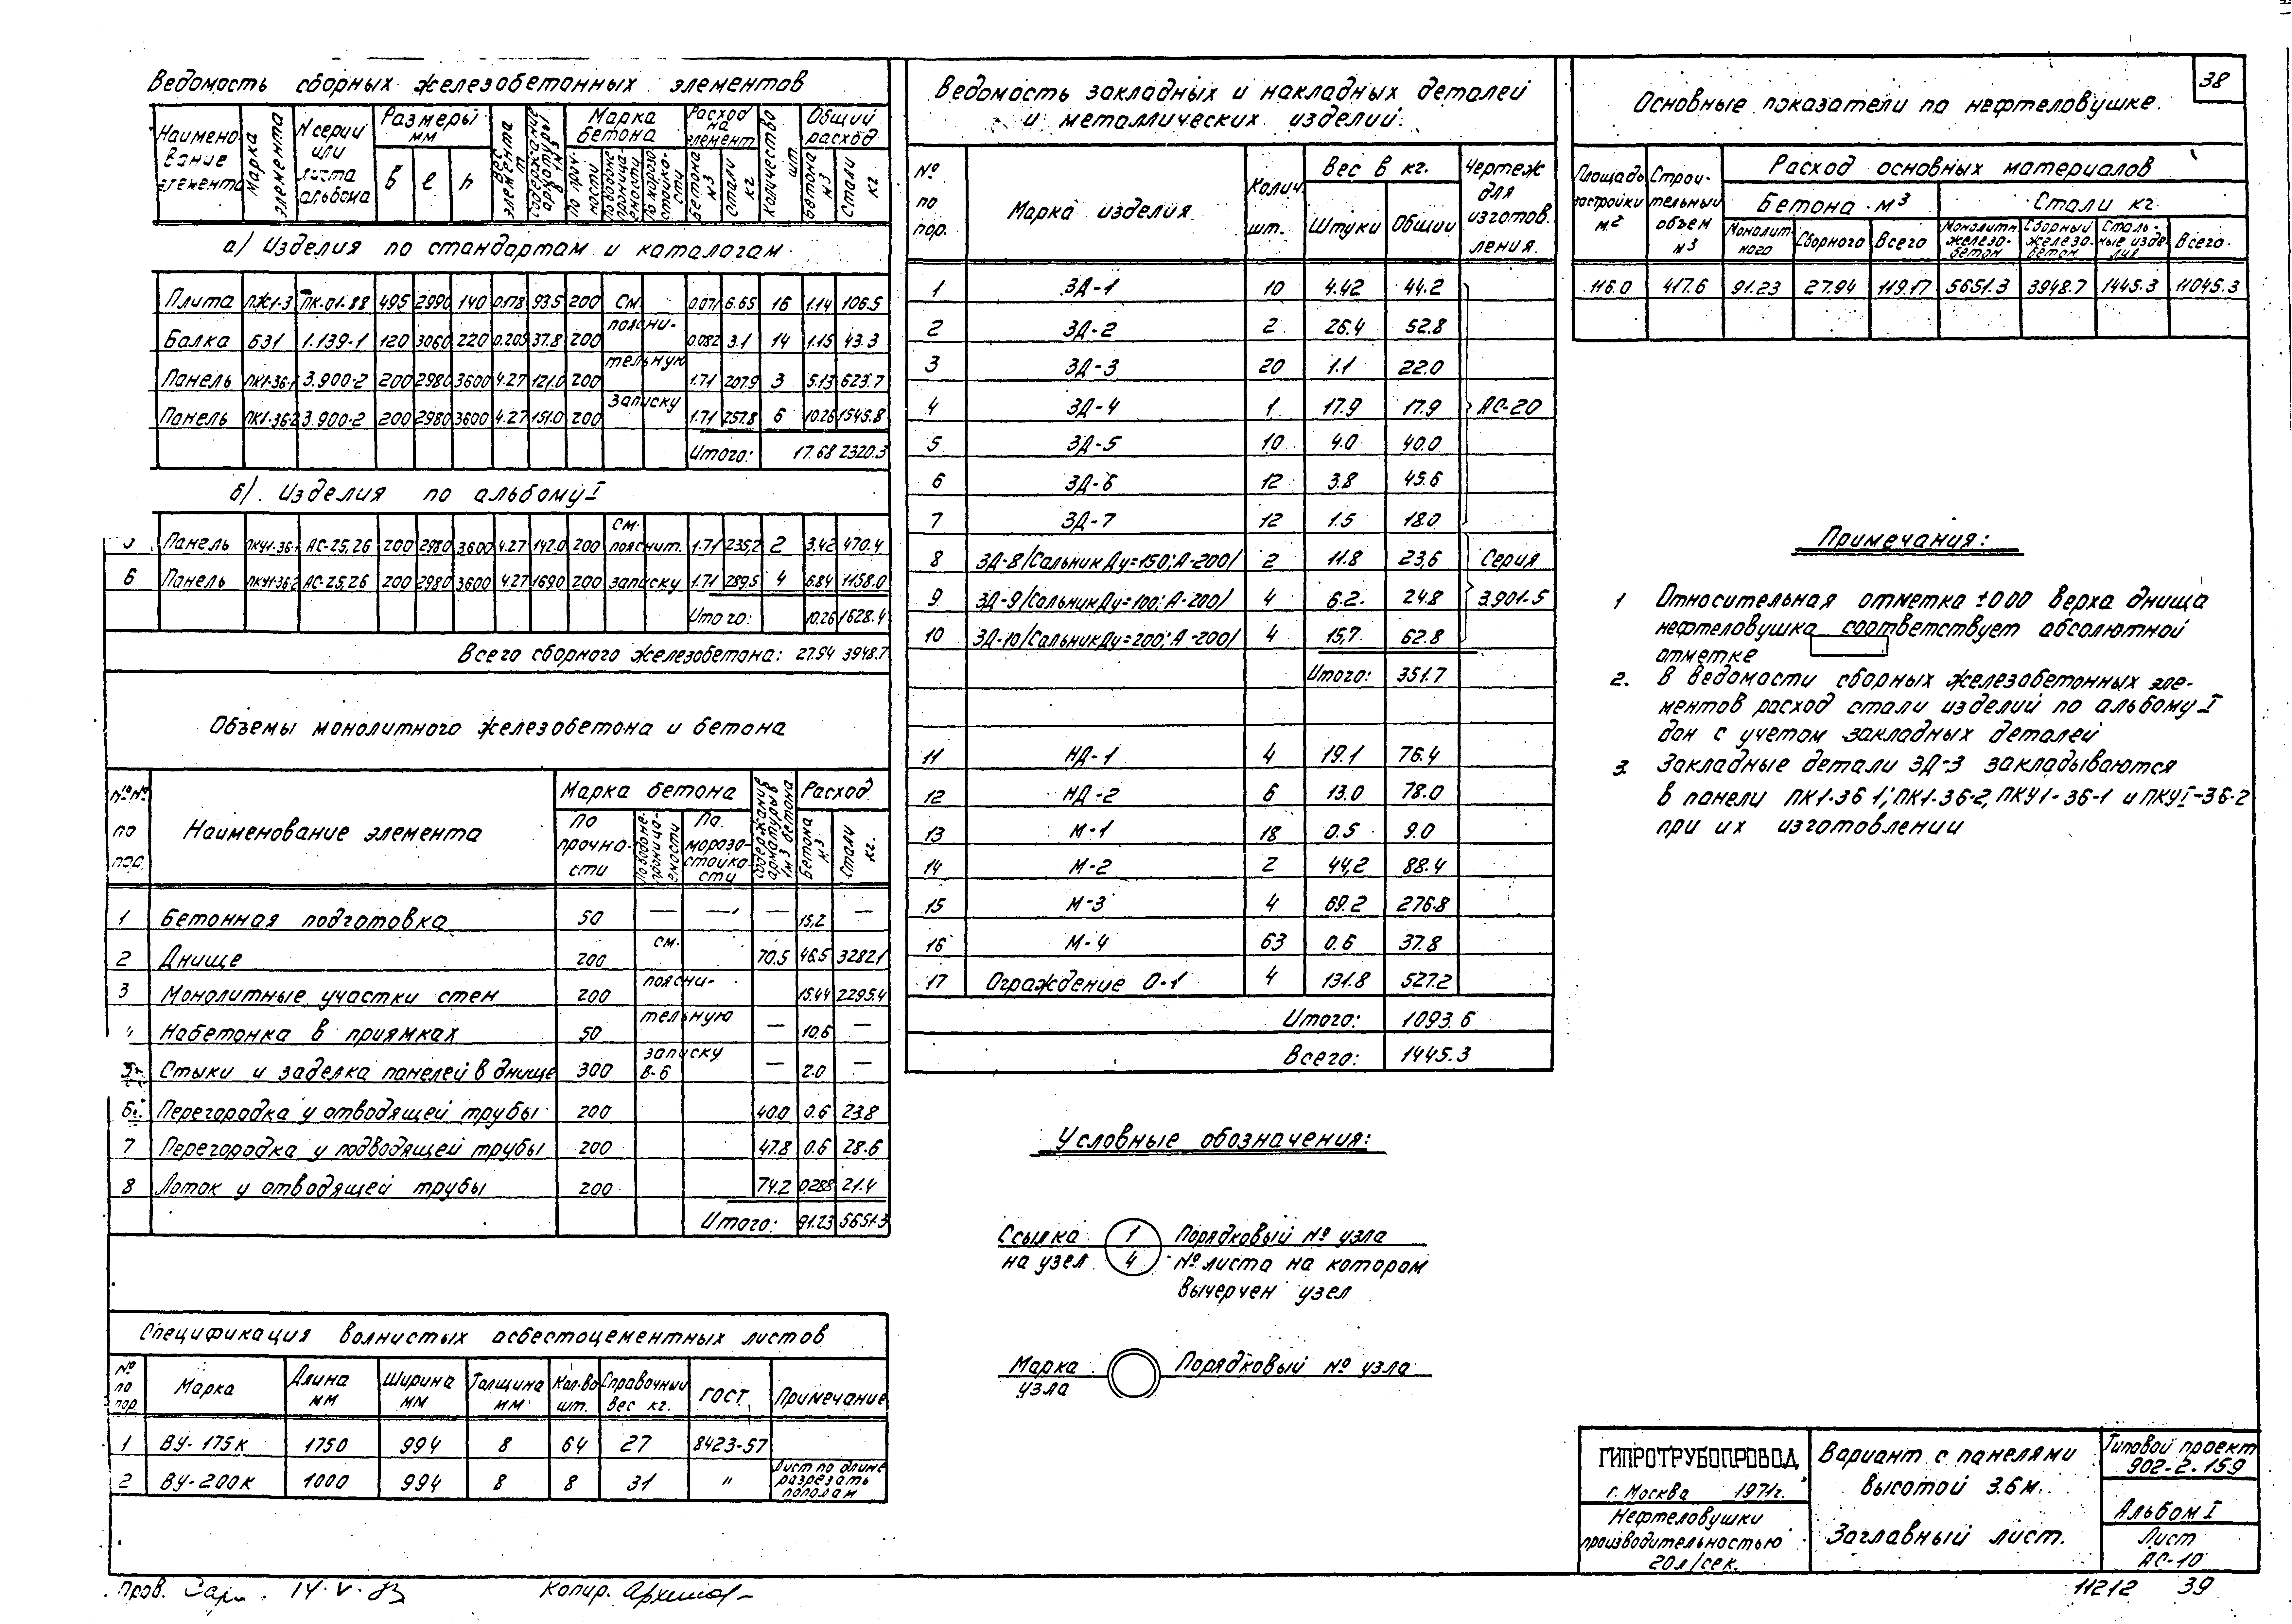 38
Ведомость сборных железобетонных элементов
Наименование элемента | Марка элемента | N серии или листа альбома | Размеры мм | Вес элемента т | Содержание арматуры в м3 | Марка бетона | Расход на элемент | Количество шт. | Общий расход
в | l | h | По прочности | По водонепроницаемости | По морозостойкости | Бетона м3 | Стали кг | Бетона м3 | Стали кг
а) Изделия по стандартам и каталогам
Плита | ПЖ1-3 | ПК-01-88 | 495 | 2990 | 140 | 0.178 | 93.5 | 200 | См. | 0.071 | 6.65 | 16 | 1.14 | 106.5
поясни-
Балка | Б31 | 1.139-1 | 120 | 3060 | 220 | 0.205 | 37.8 | 200 | 0.082 | 3.1 | 14 | 1.15 | 43.3
тельную
Панель | ПК1-36-1 | 3.900-2 | 200 | 2980 | 3600 | 4.27 | 121.0 | 200 | 1.71 | 207.9 | 3 | 5.13 | 623.7
записку
Панель | ПК1-36-2 | 3.900-2 | 200 | 2980 | 3600 | 4.27 | 151.0 | 200 | 1.71 | 257.8 | 6 | 10.26 | 1545.8
Итого: 17.68 2320.3
б). Изделия по альбому I
см.
5 | Панель | ПКУ1-36-1 | АС-25,26 | 200 | 2980 | 3600 | 4.27 | 142.0 | 200 | пояснит. | 1.71 | 235,2 | 2 | 3.42 | 470.4
6 | Панель | ПКУ1-36-2 | АС-25,26 | 200 | 2980 | 3600 | 4.27 | 169.0 | 200 | записку | 1.71 | 289.5 | 4 | 6.84 | 1158.0
Итого: 10.26 1628.4
Всего сборного железобетона: 27.94 3948.7
Объемы монолитного железобетона и бетона
№№ по пор. | Наименование элемента | Марка бетона | Содержание арматуры в 1м3 бетона | Расход
По прочности | По водонепроницаемости | По морозостойкости | Бетона м3 | Стали кг.
1 | Бетонная подготовка | 50 | — | — | — | 15,2 | —
см.
2 | Днище | 200 | 70.5 | 46.5 | 3282.1
поясни-
3 | Монолитные участки стен | 200 | 15.44 | 2295.4
тельную
4 | Набетонка в приямках | 50 | — | 10.6 | —
записку
5 | Стыки и заделка панелей в днище | 300 | В-6 | — | 2.0 | —
6 | Перегородка у отводящей трубы | 200 | 40.0 | 0.6 | 23.8
7 | Перегородка у подводящей трубы | 200 | 47.8 | 0.6 | 28.6
8 | Лоток у отводящей трубы | 200 | 74.2 | 0.288 | 21.4
Итого: 91.23 5651.3
Спецификация волнистых асбестоцементных листов
№ по пор | Марка | Длина мм | Ширина мм | Толщина мм | Кол-во шт. | Справочный вес кг. | ГОСТ | Примечание
1 | ВУ-175к | 1750 | 994 | 8 | 64 | 27 | 8423-57
2 | ВУ-200к | 1000 | 994 | 8 | 8 | 31 | " | Лист по длине разрезать пополам
Ведомость закладных и накладных деталей
и металлических изделий.
№ по пор. | Марка изделия | Колич. шт. | Вес в кг. | Чертеж для изготовления.
Штуки | Общий
1 | ЗД-1 | 10 | 4.42 | 44.2
2 | ЗД-2 | 2 | 26.4 | 52.8
3 | ЗД-3 | 20 | 1.1 | 22.0
4 | ЗД-4 | 1 | 17.9 | 17.9 | АС-20
5 | ЗД-5 | 10 | 4.0 | 40.0
6 | ЗД-6 | 12 | 3.8 | 45.6
7 | ЗД-7 | 12 | 1.5 | 18.0
8 | ЗД-8/Сальник Ду=150; А-200/ | 2 | 11.8 | 23,6 | Серия
9 | ЗД-9/Сальник Ду=100; А-200/ | 4 | 6.2 | 24.8 | 3.901-5
10 | ЗД-10/Сальник Ду=200; А-200/ | 4 | 15.7 | 62.8
Итого: 351.7
11 | НД-1 | 4 | 19.1 | 76.4
12 | НД-2 | 6 | 13.0 | 78.0
13 | М-1 | 18 | 0.5 | 9.0
14 | М-2 | 2 | 44,2 | 88.4
15 | М-3 | 4 | 69.2 | 276.8
16 | М-4 | 63 | 0.6 | 37.8
17 | Ограждение О-1 | 4 | 131.8 | 527.2
Итого: 1093.6
Всего: 1445.3
Условные обозначения:
Ссылка 1 Порядковый № узла
на узел 4 № листа на котором
вычерчен узел
Марка Порядковый № узла
узла
Основные показатели по нефтеловушке.
Площадь застройки м2 | Строительный объем м3 | Расход основных материалов
Бетона м3 | Стали кг.
Монолитного | Сборного | Всего | Монолитн. железобетон | Сборный железобетон | Стальные изделия | Всего
116.0 | 417.6 | 91.23 | 27.94 | 119.17 | 5651.3 | 3948.7 | 1445.3 | 11045.3
Примечания:
1 Относительная отметка ±0.00 верха днища
нефтеловушка соответствует абсолютной
отметке
2. В ведомости сборных железобетонных эле-
ментов расход стали изделий по альбому I
дан с учетом закладных деталей
3. Закладные детали ЗД-3 закладываются
в панели ПК1-36 1; ПК1-36-2, ПКУ1-36-1 и ПКУI-36-2
при их изготовлении
ГИПРОТРУБОПРОВОД
г. Москва 1971г.
Нефтеловушки
производительностью
20 л/сек.
Вариант с панелями
высотой 3.6м.
Заглавный лист.
Типовой проект
902-2-159
Альбом I
Лист
АС-10
Пров. 14-V-83
Копир.
11212 39